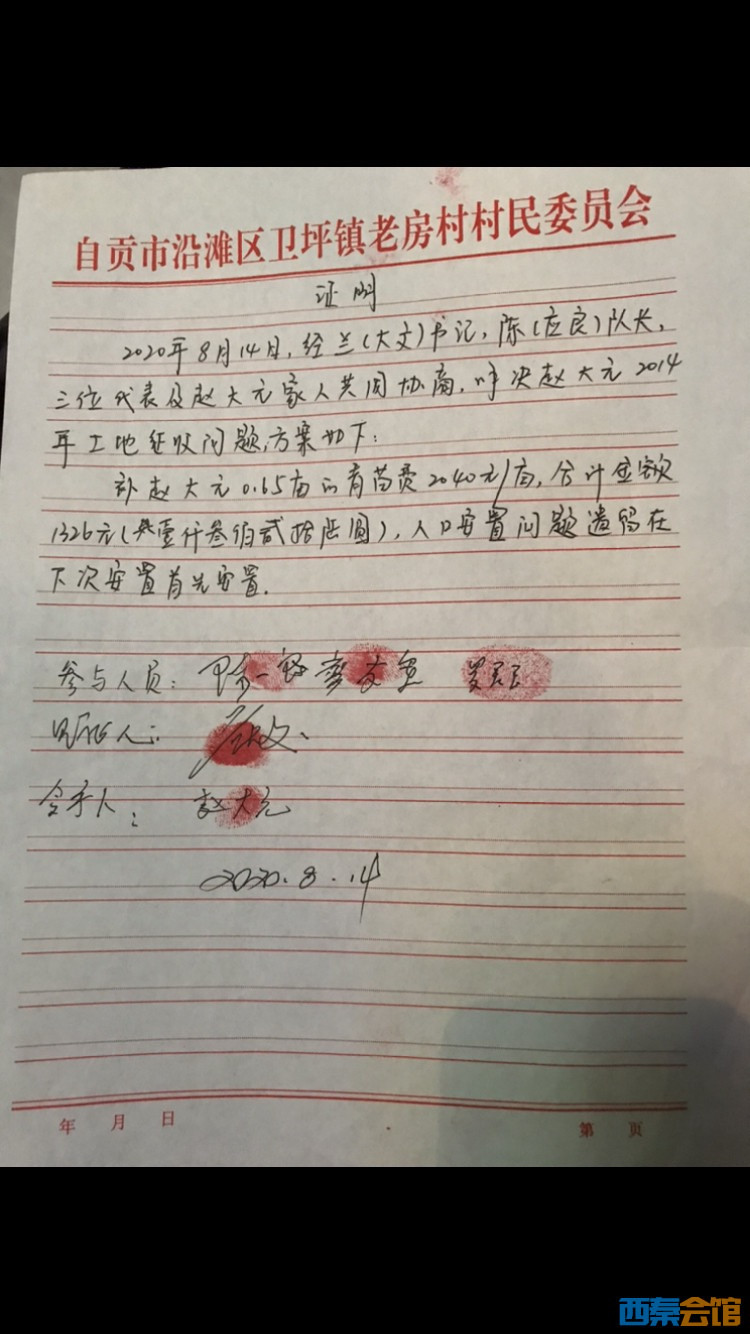 自贡市沿滩区卫坪镇老房村村民委员会
证明
2020年8月14日,经兰(大文)书记,陈(应良)队长,
三位代表及赵大元家人共同协商,决赵大元2014
年土地征收问题,方案如下:
补赵大元0.65亩的青苗费2040元/亩,合计金额
1326元(壹仟叁佰贰拾陆圆),人口安置问题遗留在
下次安置首先安置.
参与人员:
见证人:
会手人:赵大元
2020.8.14
年 月 日
第 页
西秦会馆